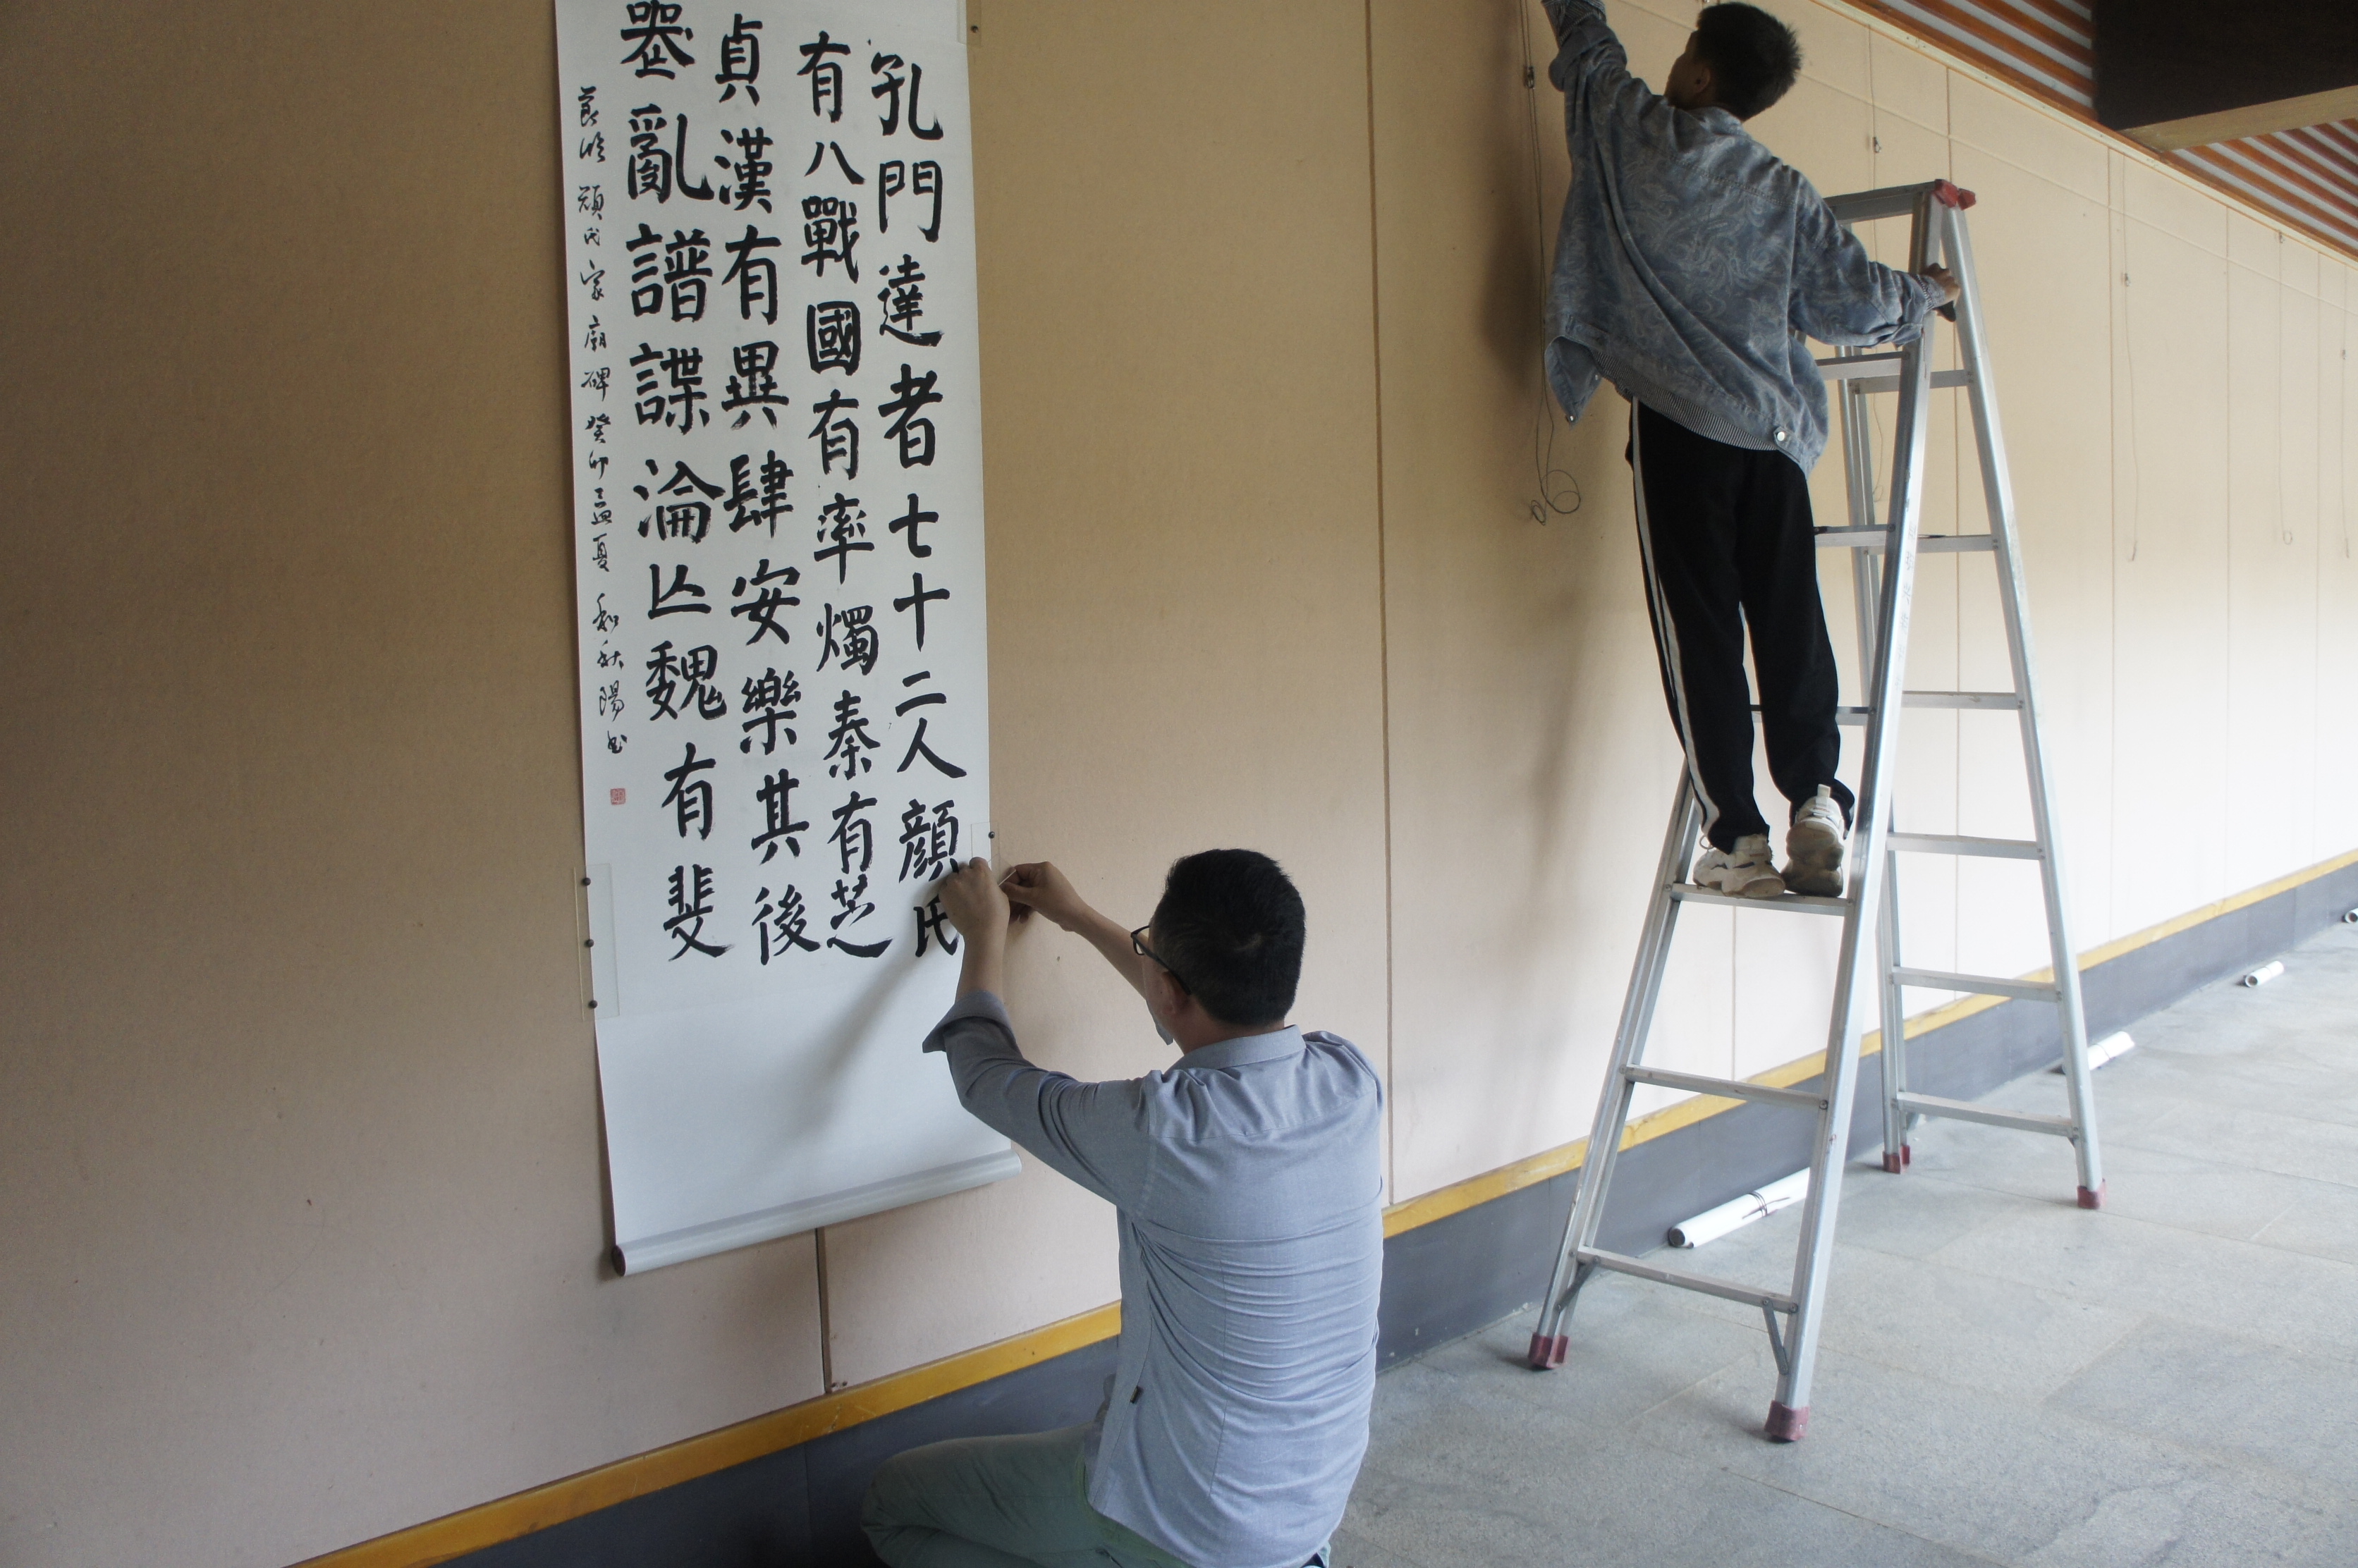 孔門達者七十二人顏氏
有八戰國有率燭秦有芝
貞漢有異肆安樂其後
器亂譜諜淪亾魏有斐
節臨顏氏家廟碑癸卯孟夏和秋陽書